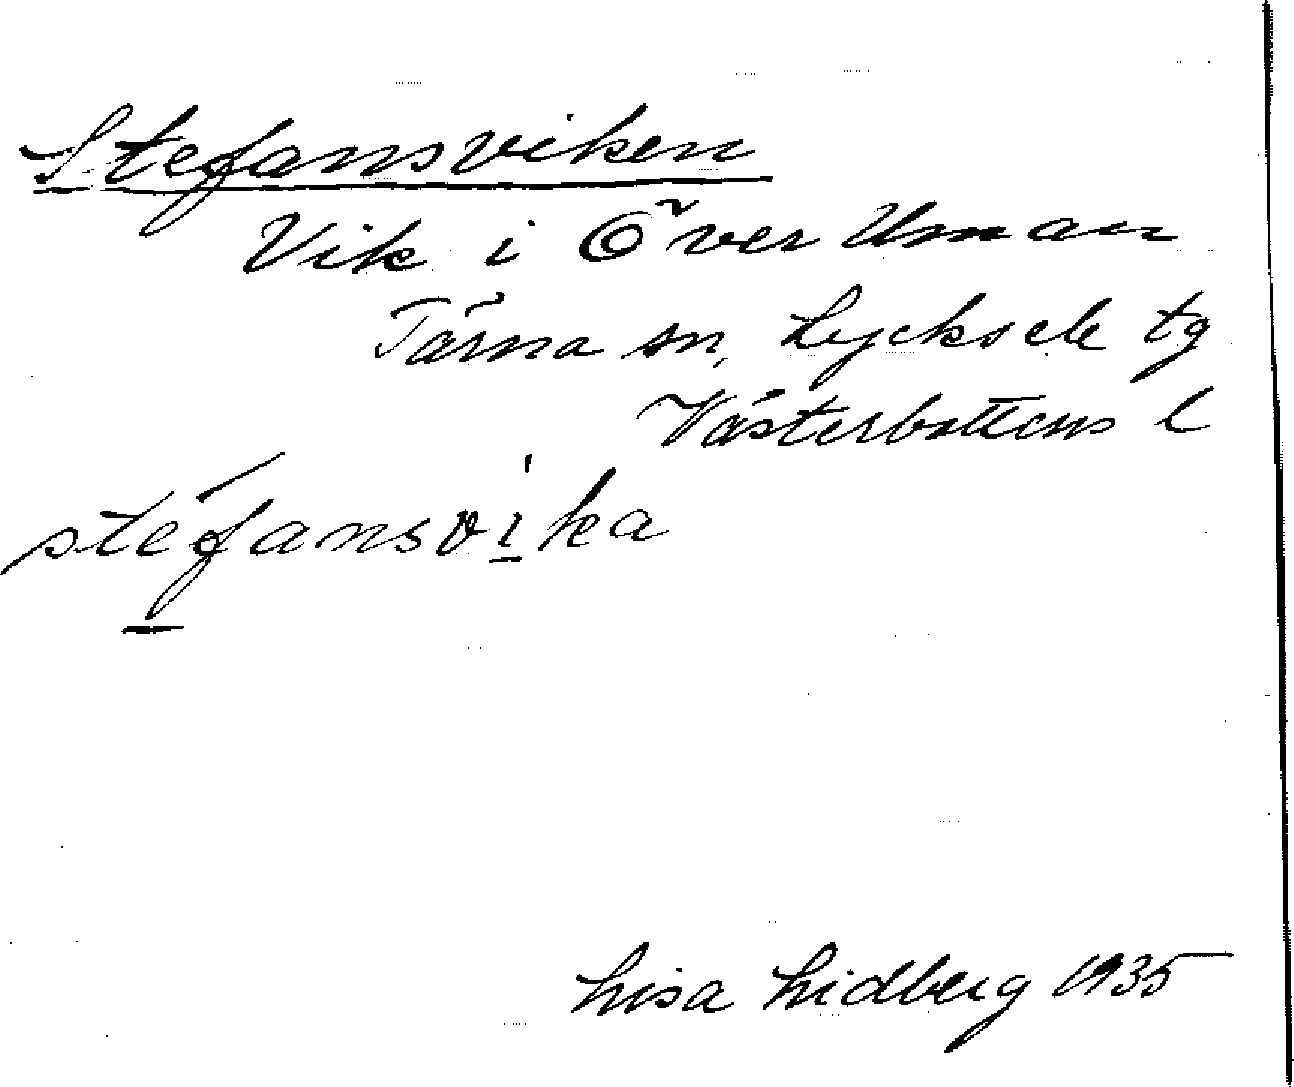 Stefansviken
Vik i Över Uman
Tärna sn, Lycksele tg
Västerbottens l
stefansvika
Lisa Lidberg 1935